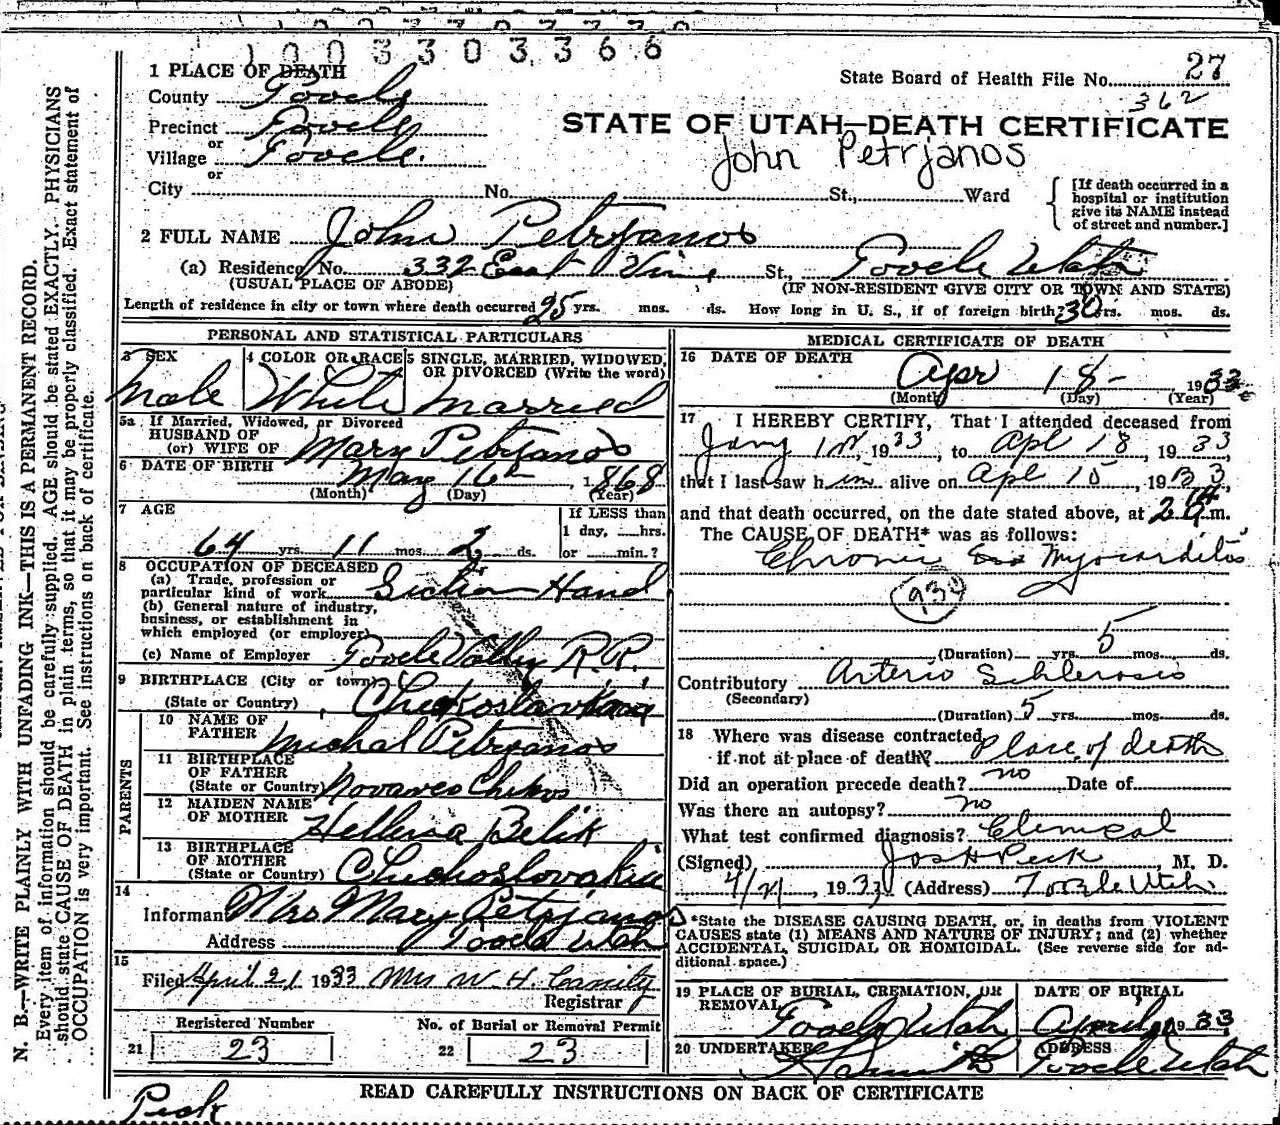 1 0 0 3 3 0 3 3 6 6
1 PLACE OF DEATH
State Board of Health File No. 27
362
County Tooele
STATE OF UTAH—DEATH CERTIFICATE
Precinct Tooele
or
Village Tooele.
John Petrjanos
or
City No. St., Ward
[If death occurred in a hospital or institution give its NAME instead of street and number.]
2 FULL NAME John Petryanos
(a) Residence, No. 332 East Vine St., Tooele Utah
(USUAL PLACE OF ABODE) (IF NON-RESIDENT GIVE CITY OR TOWN AND STATE)
Length of residence in city or town where death occurred 25 yrs. mos. ds. How long in U. S., if of foreign birth? 30 yrs. mos. ds.
PERSONAL AND STATISTICAL PARTICULARS
3 SEX 4 COLOR OR RACE 5 SINGLE, MARRIED, WIDOWED, OR DIVORCED (Write the word)
Male White Married
5a If Married, Widowed, or Divorced
HUSBAND OF
(or) WIFE OF Mary Petryanos
6 DATE OF BIRTH May 16th, 1868
(Month) (Day) (Year)
7 AGE If LESS than
1 day, hrs.
64 yrs 11 mos. 2 ds. or min.?
8 OCCUPATION OF DECEASED
(a) Trade, profession or
particular kind of work Section Hand
(b) General nature of industry,
business, or establishment in
which employed (or employer)
(c) Name of Employer Tooele Valley R.R.
9 BIRTHPLACE (City or town)
(State or Country)
PARENTS
10 NAME OF
FATHER Michal Petryanos
11 BIRTHPLACE
OF FATHER
(State or Country)
12 MAIDEN NAME
OF MOTHER Belik
13 BIRTHPLACE
OF MOTHER
(State or Country) Checkoslovakia
14
Informant Mrs Mary Petrjanos
Address Tooele Utah
15
Filed April 21 1933 Mrs W. H.
Registrar
Registered Number No. of Burial or Removal Permit
21 23 22 23
MEDICAL CERTIFICATE OF DEATH
16 DATE OF DEATH
Apr 18- 1933
(Month) (Day) (Year)
17 I HEREBY CERTIFY, That I attended deceased from
Jany 1st, 1933, to Apl 18, 1933,
that I last saw him alive on Apl 15, 1933,
and that death occurred, on the date stated above, at 2 m.
The CAUSE OF DEATH* was as follows:
Chronic Myocarditis
(Duration) yrs. 5 mos. ds.
Contributory Arterio Schlerosis
(Secondary)
(Duration) 5 yrs. mos. ds.
18 Where was disease contracted
if not at place of death? Place of death
Did an operation precede death? no Date of
Was there an autopsy? no
What test confirmed diagnosis? Clenical
(Signed) Jos H Peck, M. D.
4/21, 1933 (Address) Tooele Utah
*State the DISEASE CAUSING DEATH, or, in deaths from VIOLENT
CAUSES state (1) MEANS AND NATURE OF INJURY; and (2) whether
ACCIDENTAL, SUICIDAL OR HOMICIDAL. (See reverse side for ad-
ditional space.)
19 PLACE OF BURIAL, CREMATION, OR REMOVAL DATE OF BURIAL
Tooele Utah April 1933
20 UNDERTAKER ADDRESS
Tooele Utah
READ CAREFULLY INSTRUCTIONS ON BACK OF CERTIFICATE
Peck
N. B.—WRITE PLAINLY WITH UNFADING INK—THIS IS A PERMANENT RECORD.
Every item of information should be carefully supplied. AGE should be stated EXACTLY. PHYSICIANS
should state CAUSE OF DEATH in plain terms, so that it may be properly classified. Exact statement of
OCCUPATION is very important. See instructions on back of certificate.